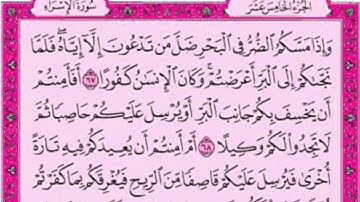 سُورَةُ الإِسْرَاءِ
الجُزْءُ الخَامِسَ عَشَرَ
وَإِذَا مَسَّكُمُ ٱلضُّرُّ فِى ٱلْبَحْرِ ضَلَّ مَن تَدْعُونَ إِلَّآ إِيَّاهُ ۖ فَلَمَّا
نَجَّىٰكُمْ إِلَى ٱلْبَرِّ أَعْرَضْتُمْ ۚ وَكَانَ ٱلْإِنسَٰنُ كَفُورًا ٦٧ أَفَأَمِنتُمْ
أَن يَخْسِفَ بِكُمْ جَانِبَ ٱلْبَرِّ أَوْ يُرْسِلَ عَلَيْكُمْ حَاصِبًا ثُمَّ
لَا تَجِدُوا۟ لَكُمْ وَكِيلًا ٦٨ أَمْ أَمِنتُمْ أَن يُعِيدَكُمْ فِيهِ تَارَةً
أُخْرَىٰ فَيُرْسِلَ عَلَيْكُمْ قَاصِفًا مِّنَ ٱلرِّيحِ فَيُغْرِقَكُم بِمَا كَفَرْتُمْ